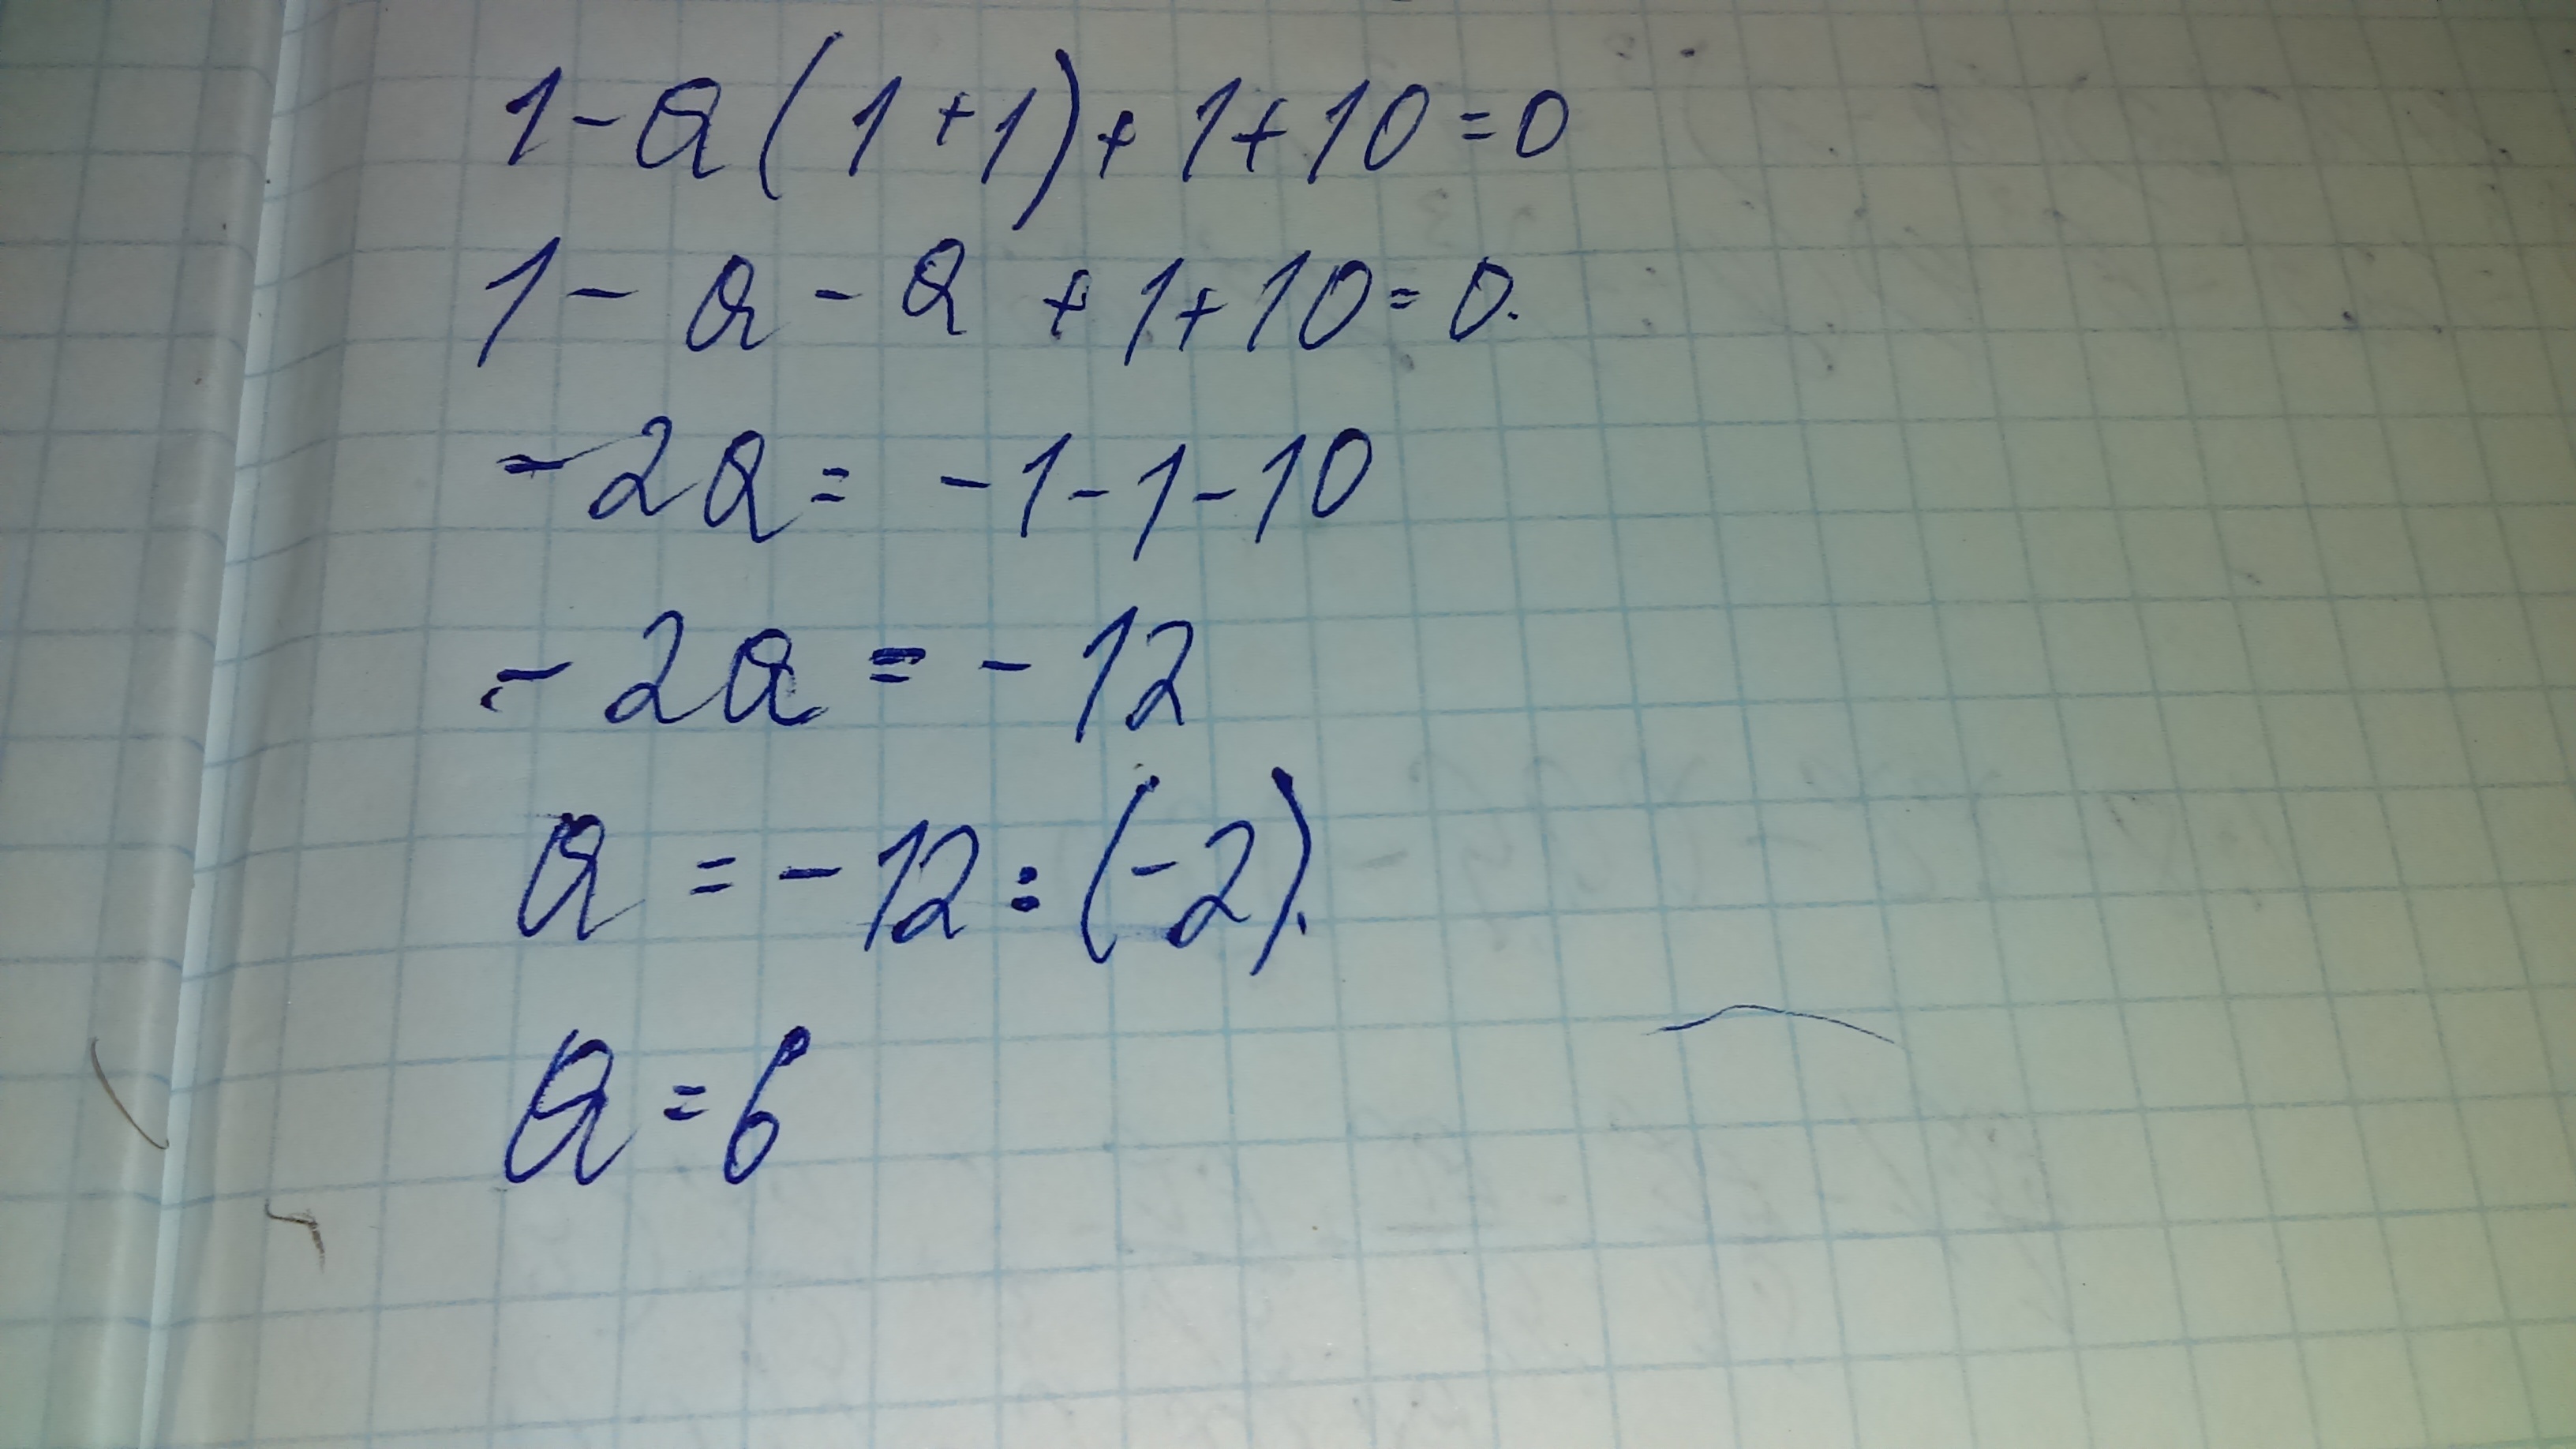 1-a(1+1)+1+10=0
1-a-a+1+10=0.
-2a=-1-1-10
-2a=-12
a=-12:(-2).
a=6